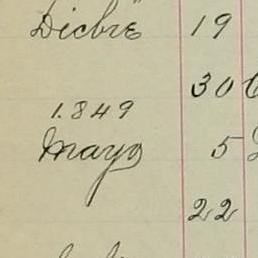 Dicbre 19
30
1.849
Mayo 5
22